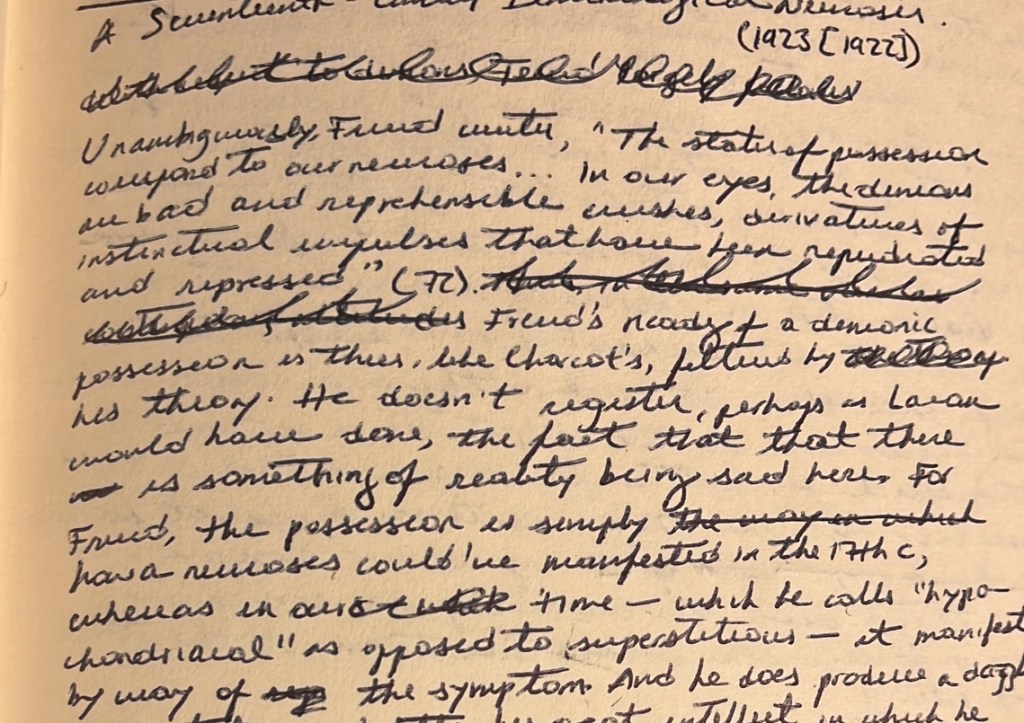 A Seventeenth-Century Demonological Neurosis.
(1923 [1922])
Unambiguously, Freud writes, "The states of possession
correspond to our neuroses... In our eyes, the demons
are bad and reprehensible wishes, derivatives of
instinctual impulses that have been repudiated
and repressed" (72).
Freud's reading of a demonic
possession is thus, like Charcot's, filtered by
his theory. He doesn't register, perhaps as Lacan
would have done, the fact that that there
is something of reality being said here. For
Freud, the possession is simply the way in which
how a neuroses could've manifested in the 17th c,
whereas in our time — which he calls "hypo-
chondriacal" as opposed to superstitious — it manifest
by way of the symptom. And he does produce a
intellect in which he